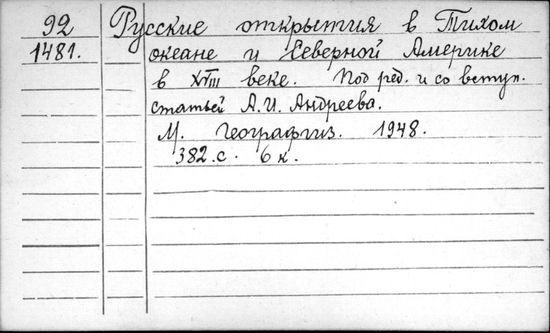 92 Русские открытия в Тихом
1481. океане и Северной Америке
в XVIII веке. Под ред. и со вступ.
статьей А.И. Андреева.
М. Географгиз. 1948.
382.с. 6 к.